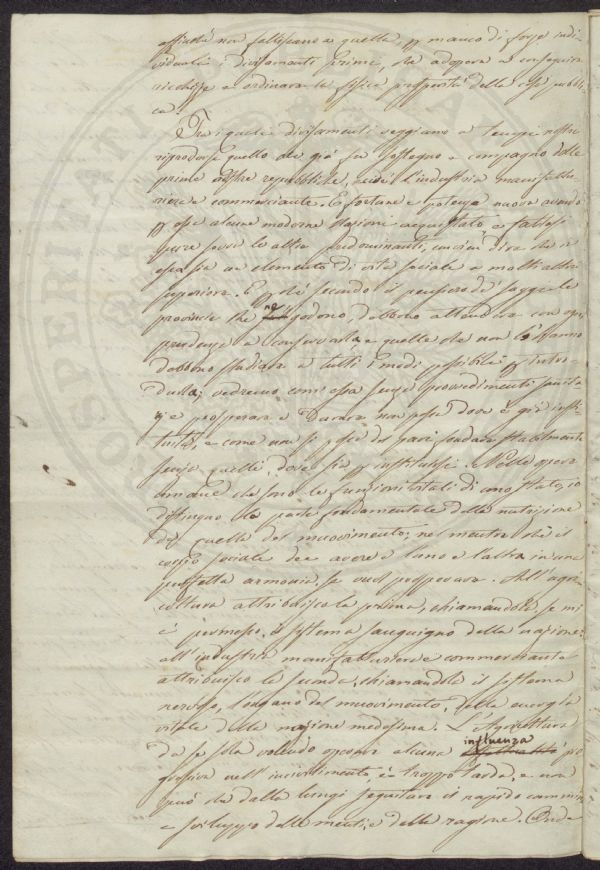 affinché non falliscano a quella, p manco di forze indi-
viduali i divisamenti primi, che adopera a conseguire
ricchezze e ordinare la fisica prosperità della cosa pubbli-
ca.
Tra i quali divisamenti veggiamo a tempi nostri
riprodursi quello che già fu sostegno e compagno delle
prime nostre repubbliche, cioè l'industria manifattu-
riera e commerciante. E fortuna e potenza nuova avendo
p essa alcune moderne nazioni acquistato e fattesi
pure verso le altre predominanti, convien dire che
essa sia un elemento di vita sociale a molti altri
superiore. E poiché secondo il pensiero di saggi le
provincie che ne godono, debbono attendere con ogni
prudenza a conservarla, e quelle che non l'hanno
debbono studiare a tutti i modi possibili p intro-
durla; vedremo com'essa senza provvedimenti
e prosperare e durare non possa dove è già insti-
tuita, e come non si possa del pari fondare stabilmente
senza quelli, dove sia p instituirsi. Nelle opere
dunque che sono le funzioni vitali di uno stato, io
distinguo la parte fondamentale della nutrizione
da quella del muovimento; nel mentre che il
corpo sociale dee avere l'una e l'altra in una
perfetta armonia, se vuol prosperare. All'agri-
coltura attribuisco la prima, chiamandola se mi
è permesso, il sistema sanguigno della nazione;
all'industria manifatturiera e commerciante
attribuisco la seconda, chiamandola il sistema
nervoso, l'organo del muovimento, della energia
vitale della nazione medesima. L'Agricoltura
da se sola volendo operare alcuna influenza pro
gressiva nell'incivilimento, è troppo tarda, e non
può che dalla lungi seguitare il rapido cammino
e sviluppo delle menti, e della ragione. Onde
PROSPERITATI PUBLICAE